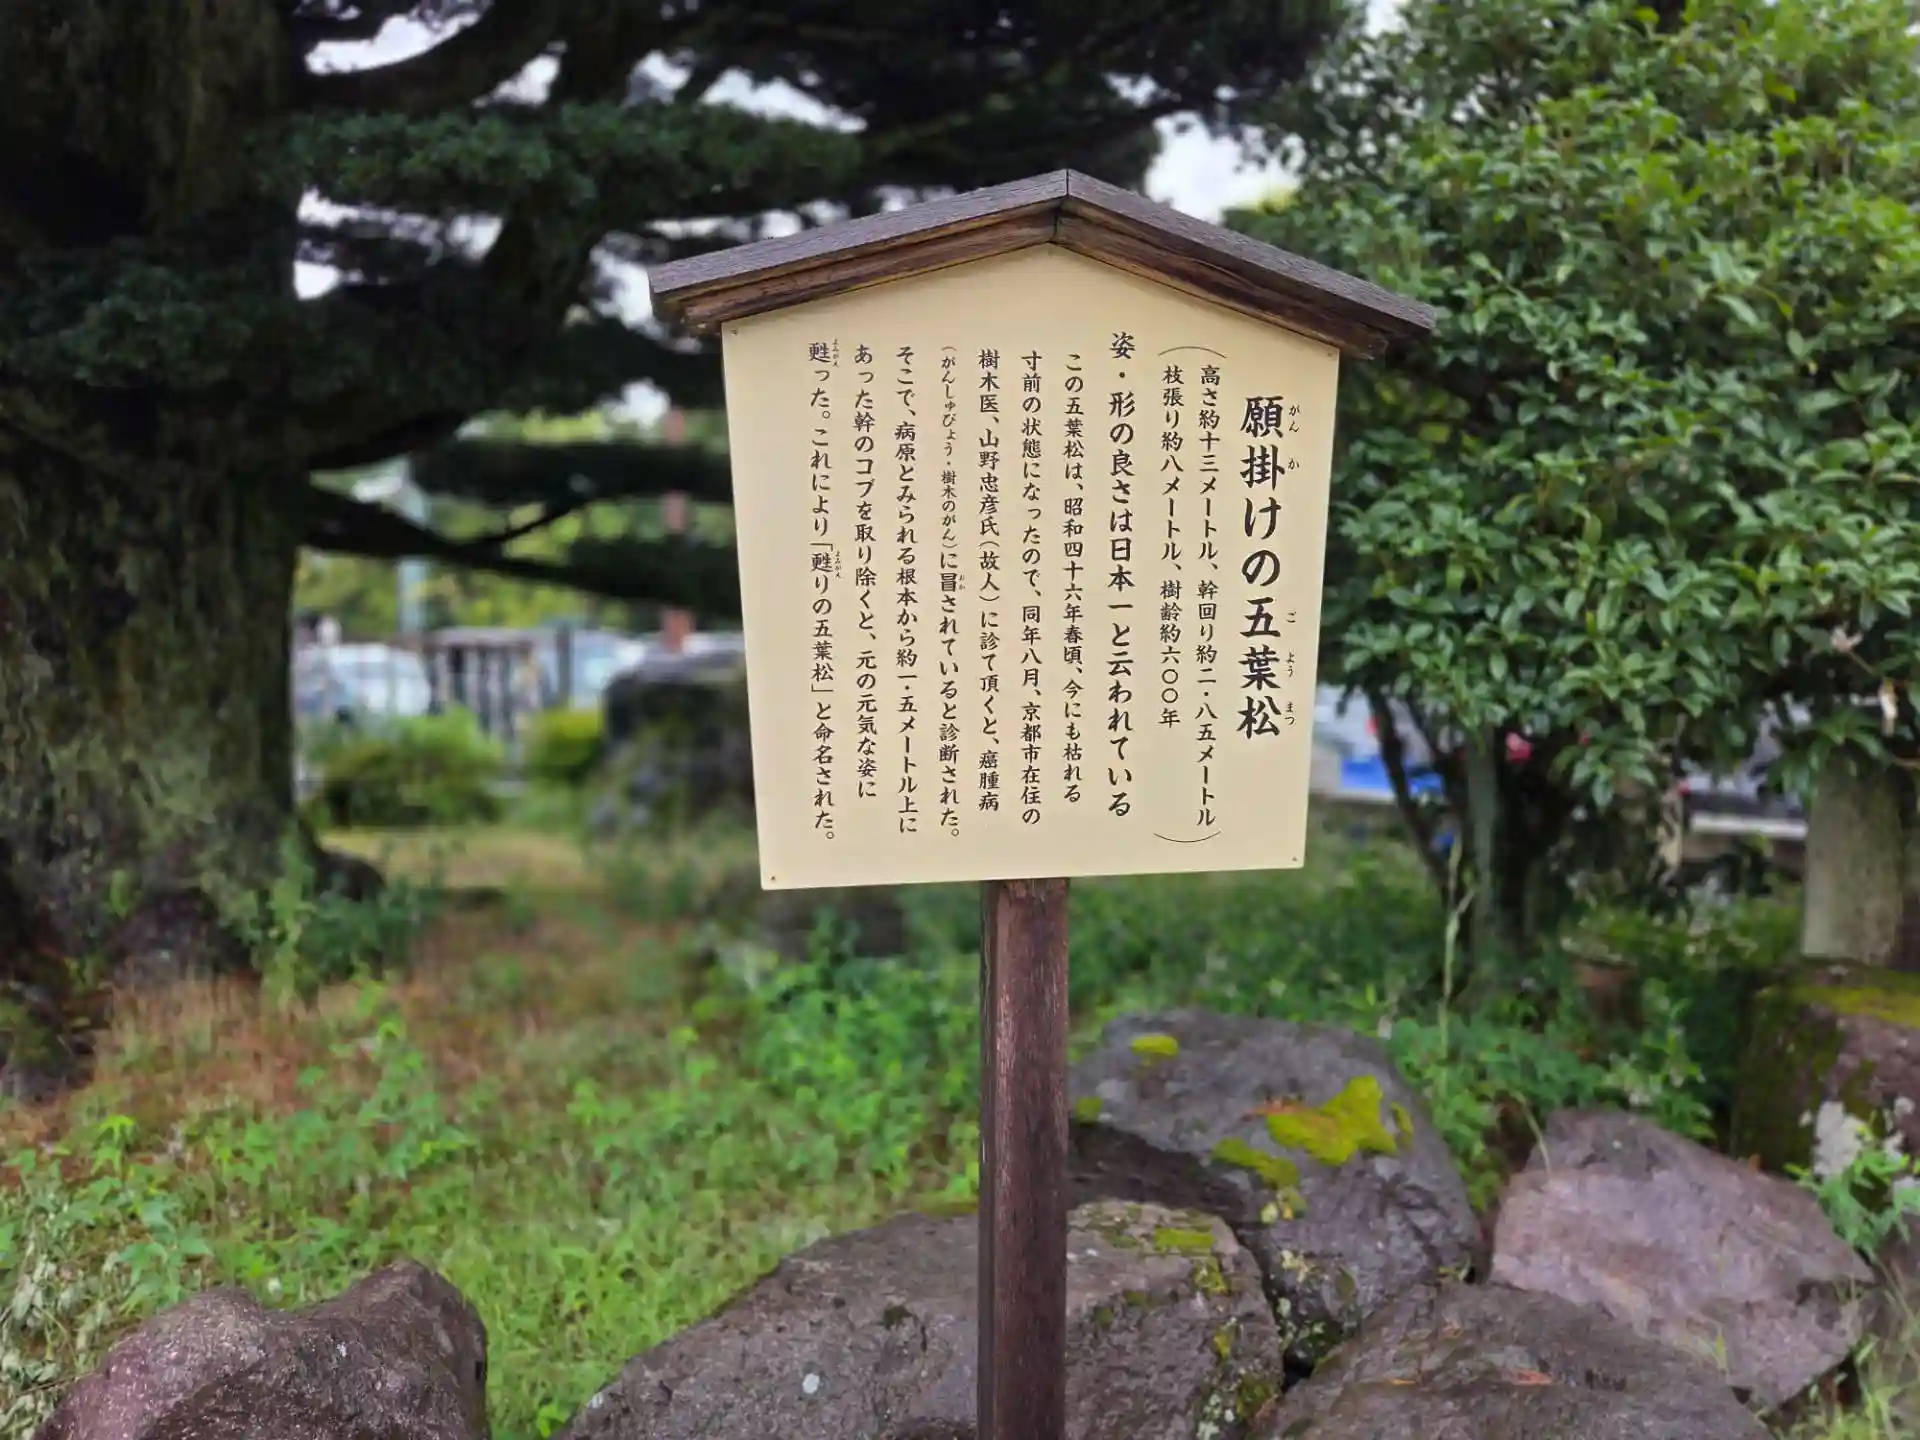 願掛けの五葉松
がんか ごようまつ
（高さ約十三メートル、幹回り約二・八五メートル
枝張り約八メートル、樹齢約六〇〇年）
姿・形の良さは日本一と云われている
この五葉松は、昭和四十六年春頃、今にも枯れる
寸前の状態になったので、同年八月、京都市在住の
樹木医、山野忠彦氏（故人）に診て頂くと、癌腫病
（がんしゅびょう・樹木のがん）に冒されていると診断された。
おか
そこで、病原とみられる根本から約一・五メートル上に
あった幹のコブを取り除くと、元の元気な姿に
甦った。これにより「甦りの五葉松」と命名された。
よみがえ よみがえ